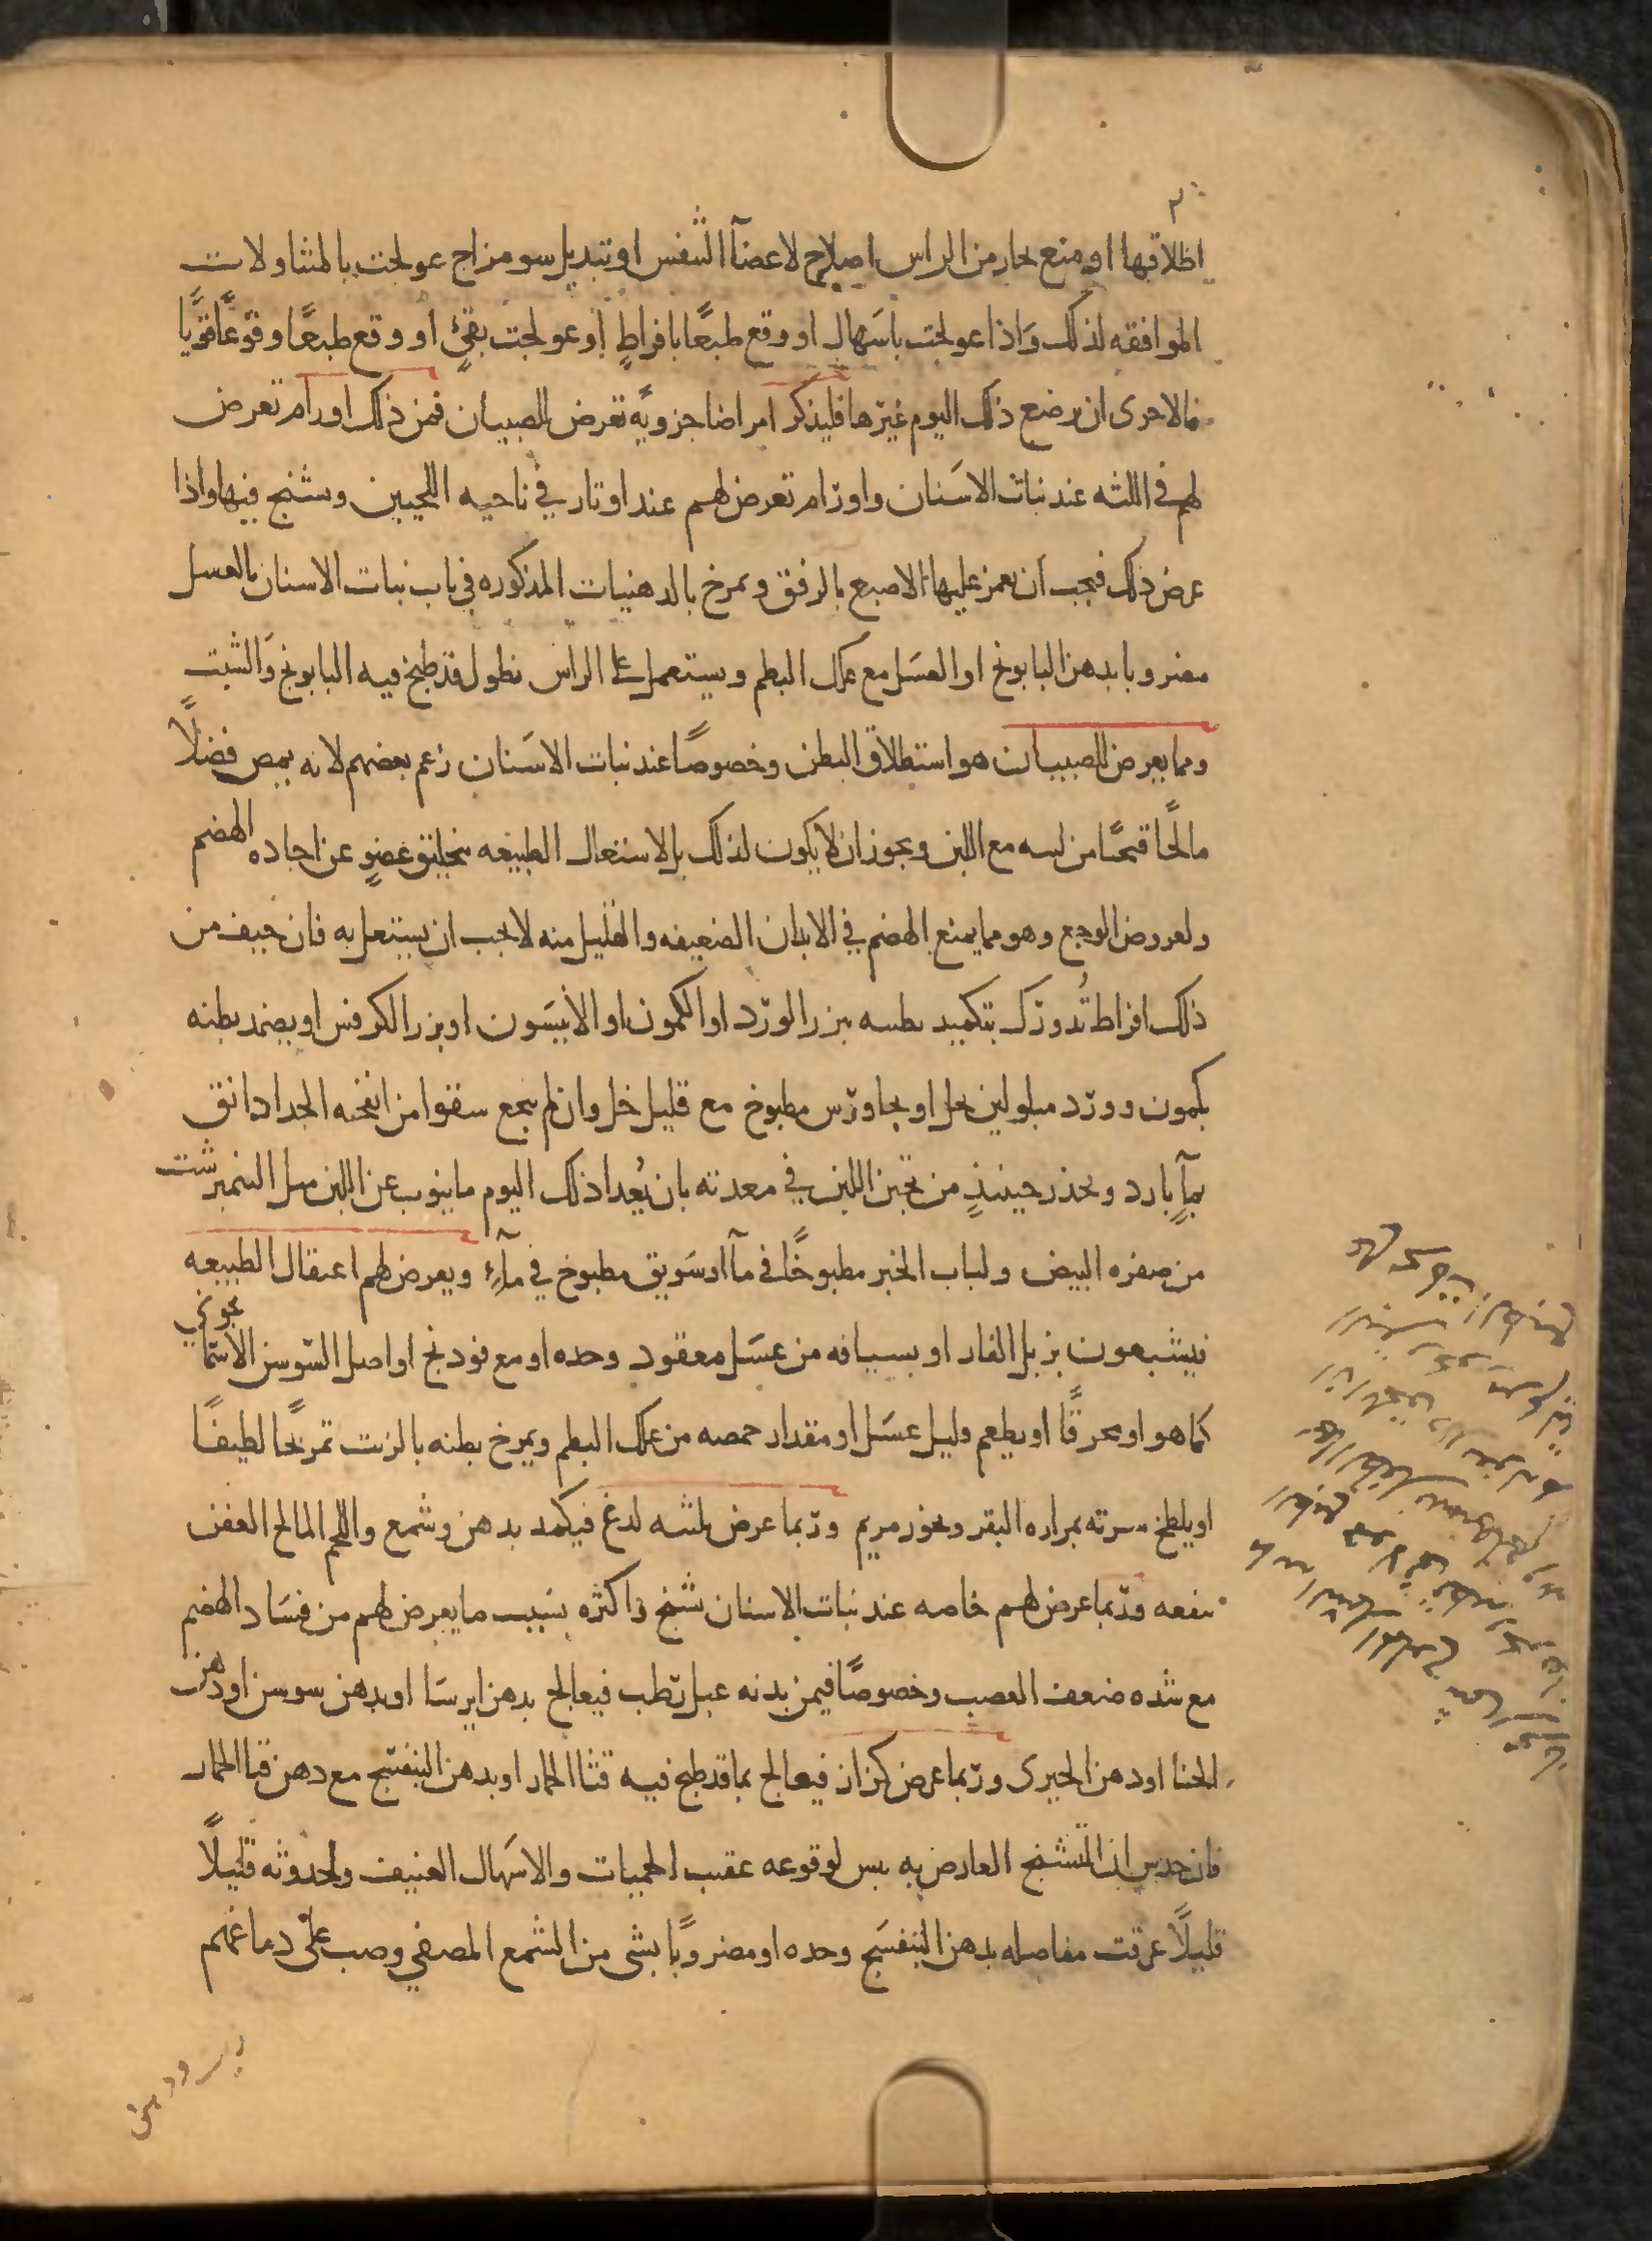 اطلاقها او منع بخار من الراس اصلاح لاعضآ التنفس او تبديل سو مزاج عولجت بالمتناولات
الموافقه لذلك وَاذا عولجت باسَهال او وقع طبعًا بافراطٍ او عولجت بقئٍ او وقع طبعًا وقوعًا قويًا
فالاحرى ان يرضع ذلك اليوم غيرها فليذكر امراضا جزويه تعرض للصبيان فمن ذلك اورام تعرض
لهم في اللثه عند نبات الاسَنان واورام تعرض لهم عند اوتار في ناحيه اللحيين وتشنج فيها واذا
عرض ذلك فيجب ان يغمز عليها الاصبع بالرفق ويمرخ بالدهنيات المذكوره في باب نبات الاسنان بالعسل
مضروبا بدهن البابونج او العسَل مع علك البطم ويستعمل على الراس نطول قد طبخ فيه البابونج وَالشبت
ومما يعرض للصبيان هو استطلاق البطن وخصوصًا عند نبات الاسَنان زعم بعضهم لانه يمص فضلًا
مالحًا قيحيًا من لثته مع اللبن ويجوز ان لا يكون لذلك بل لاشتغال الطبيعه بتخليق عضوٍ عن اجاده الهضم
ولعروض الوجع وهو مما يمنع الهضم في الابدان الضعيفه والقليل منه لا يجب ان يشتغل به فان خيف من
ذلك افراط تُدورك بتكميد بطنه ببزر الورد او الكمون او الانيسَون او بزر الكرفس او يضمد بطنه
بكمون وورد مبلولين بخل او بجاورس مطبوخ مع قليل خل وان لم ينجع سقوا من انفحه الجدا دانق
بمآءٍ بارد ويحذر حينئذٍ من تجبن اللبن في معدته بان يُغذا ذلك اليوم ما ينوب عن اللبن مثل النمبرشت
من صفره البيض ولباب الخبز مطبوخًا في مآ او سَويق مطبوخ في مآءٍ ويعرض لهم اعتقال الطبيعه
فيشبعون بزبل الفار او بسيافه من عسَل معقود وحده او مع فودنج او اصل السّوسن الاسمانجوني
كما هو او محرقًا او يطعم قليل عسَل او مقدار حمصه من علك البطم ويمرخ بطنه بالزيت تمريخًا لطيفًا
او يلطخ سرته بمراره البقر وبخور مريم وربما عرض بلثته لدغ فيكمد بدهن وشمع واللحم المالح العفن
ينفعه وربما عرض لهم خاصه عند نبات الاسنان تشنج واكثره بسَبب ما يعرض لهم من فسَاد الهضم
مع شده ضعف العصب وخصوصًا فيمن بدنه عبل رطب فيعالج بدهن ايرسَا او بدهن سوسن او دهن
الحنا او دهن الخيرى وربما عرض كزاز فيعالج بما قد طبخ فيه قثا الحمار او بدهن البنفسَج مع دهن قثا الحمار
فان حدس ان التشنج العارض به يبس لوقوعه عقب الحميات والاسَهال العنيف ولحدوثه قليلًا
قليلًا عرقت مفاصله بدهن البنفسَج وحده او مضروبًا بشى من الشمع المصفي وصب على دماغهم